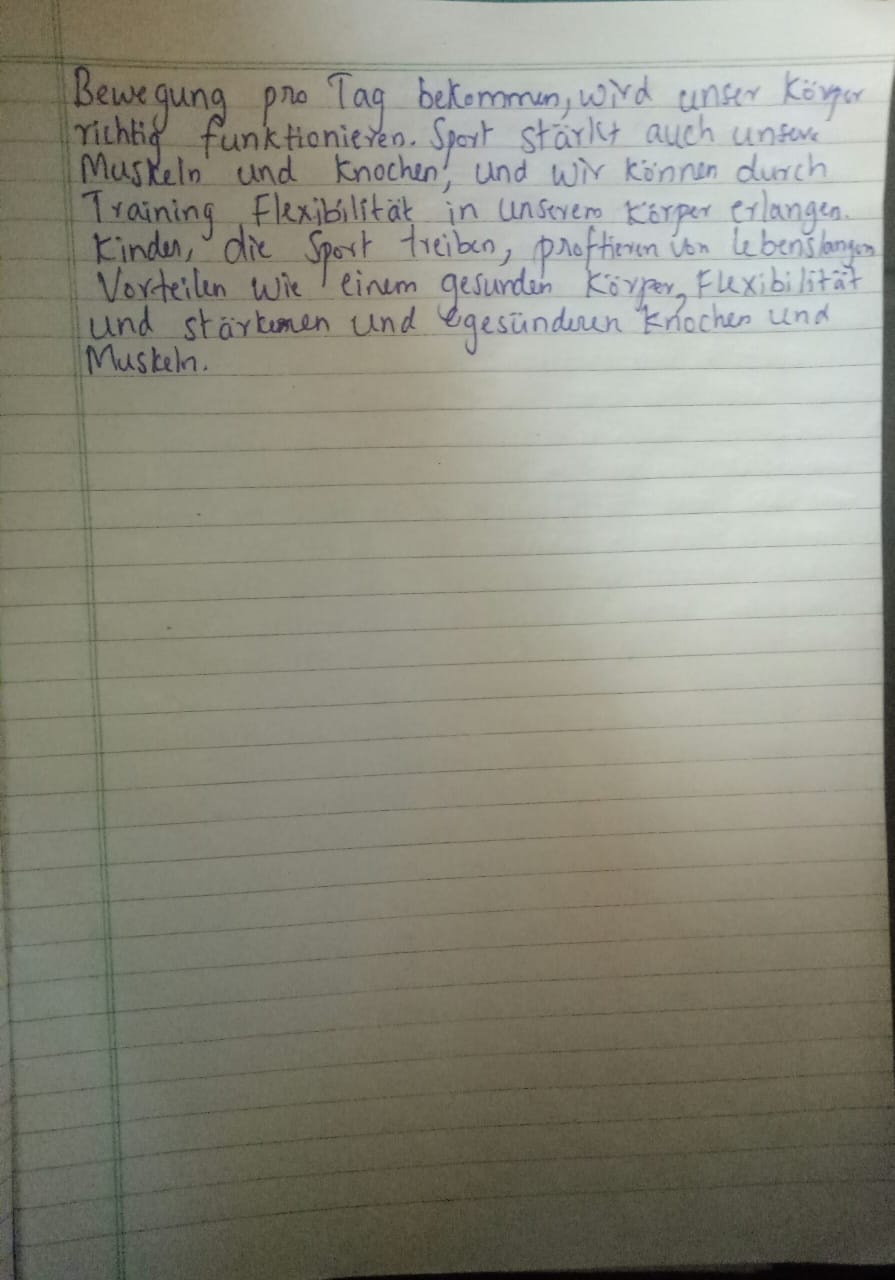 Bewegung pro Tag bekommen, wird unser Körper
richtig funktionieren. Sport stärkt auch unsere
Muskeln und Knochen, und wir können durch
Training Flexibilität in unserem Körper erlangen.
Kinder, die Sport treiben, proftieren von lebenslangen
Vorteilen wie einem gesunden Körper, Flexibilität
und stärkenen und gesünderen Knochen und
Muskeln.